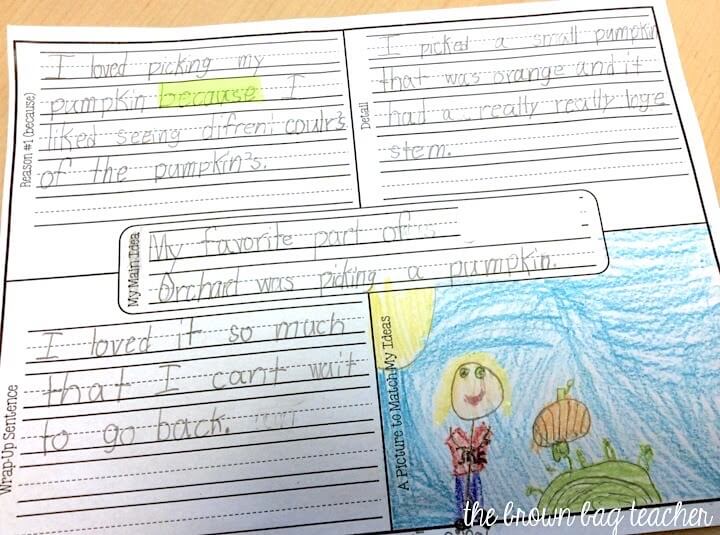 Reason #1 (because)
I loved picking my
pumpkin because I
liked seeing difrent coulr's
of the pumpkin's.
Detail
I picked a small pumpkin
that was orange and it
had a really really loge
stem.
My Main Idea
My favorite part of
Orchard was picking a pumpkin.
Wrap-Up Sentence
I loved it so much
that I can't wait
to go back.
A Picture to Match My Ideas
the brown bag teacher